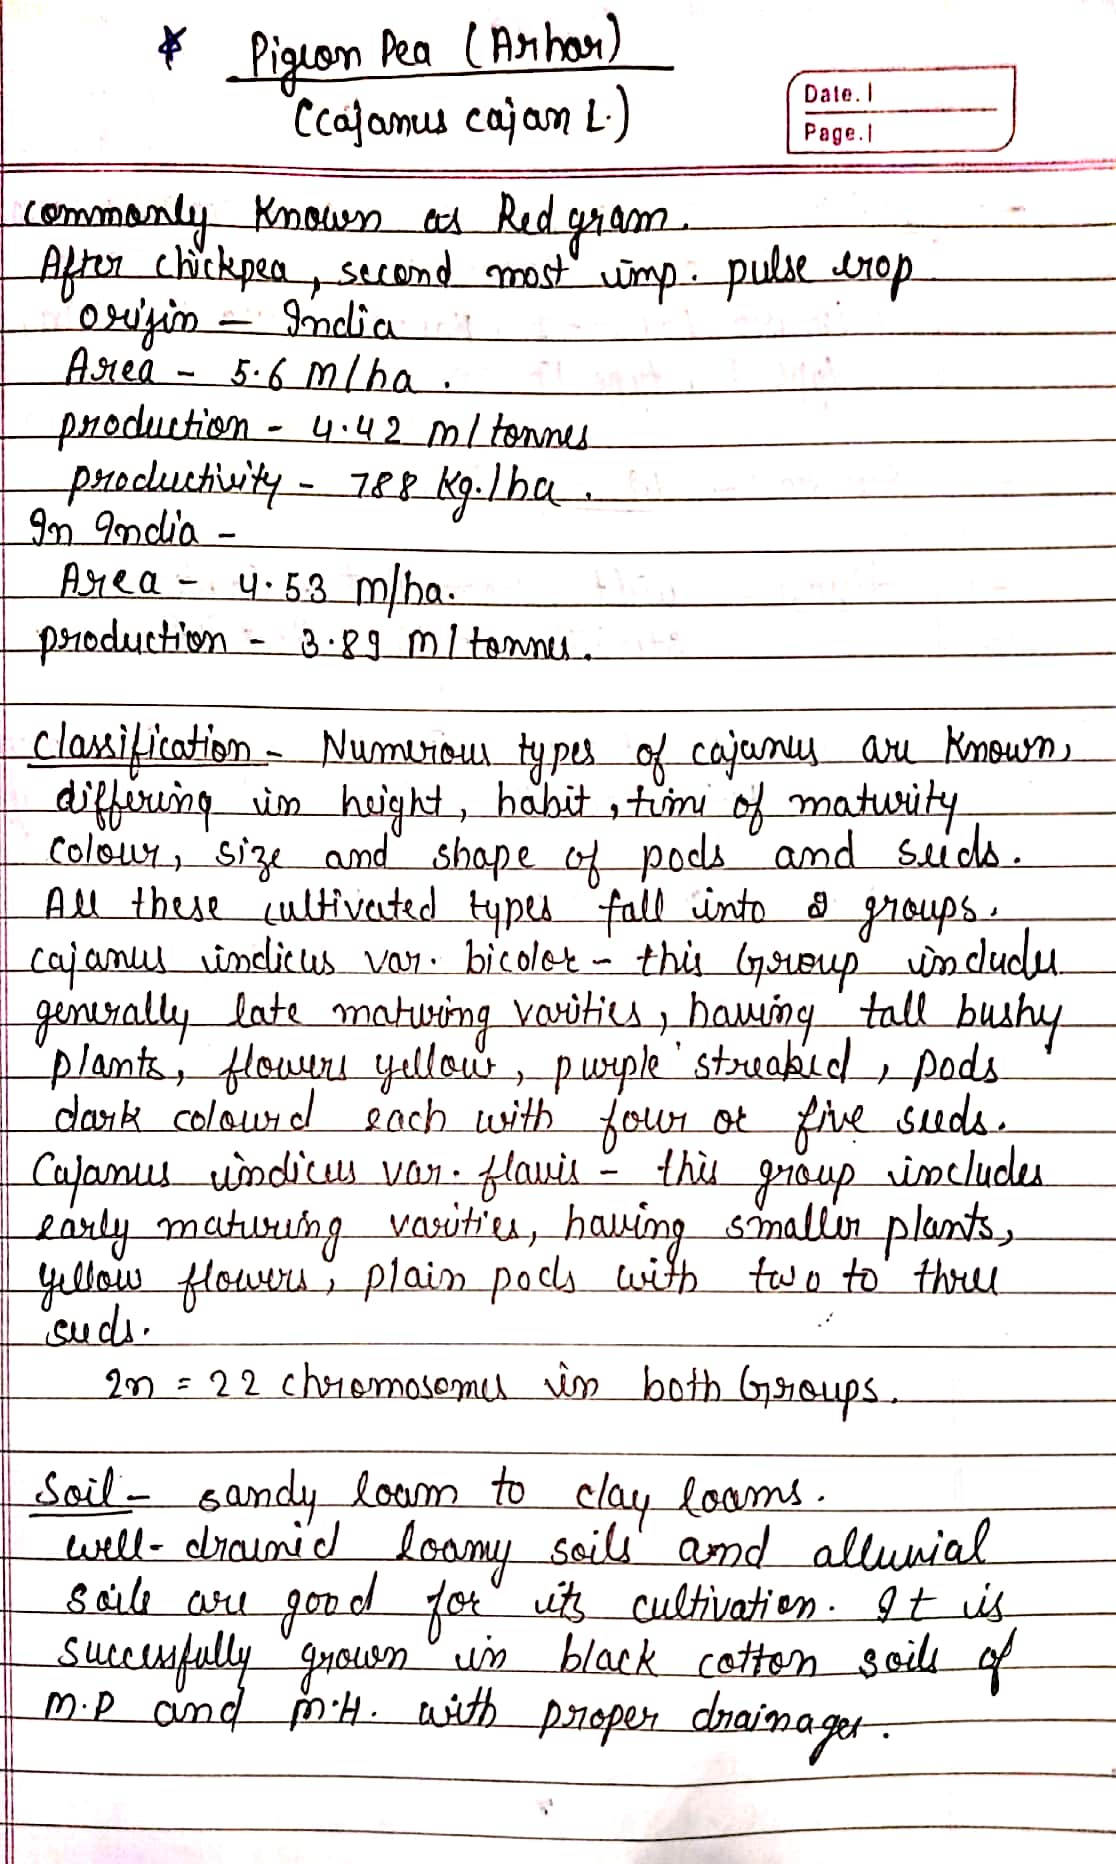 * Pigeon Pea (Arhar)
(Cajanus cajan L.)
Date.
Page.
Commonly Known as Red gram.
After chickpea, second most imp. pulse crop
origin - India
Area - 5.6 m/ha.
production - 4.42 m/tonnes
productivity - 788 kg./ha.
In India -
Area - 4.53 m/ha.
production - 3.89 m/tonnes.
Classification - Numerous types of cajanus are Known,
differing in height, habit, time of maturity
colour, size and shape of pods and seeds.
All these cultivated types fall into 2 groups.
Cajanus indicus var. bicolor - this Group includes
generally late maturing varities, having tall bushy
plants, flowers yellow, purple streaked, pods
dark colourd each with four or five seeds.
Cajanus indicus var. flavis - this group includes
early maturing varities, having smaller plants,
yellow flowers, plain pods with two to three
seeds.
2n = 22 chromosomes in both Groups.
Soil - sandy loam to clay loams.
well-drained loamy soils and alluvial
soils are good for its cultivation. It is
successfully grown in black cotton soils of
M.P and M.H. with proper drainages.